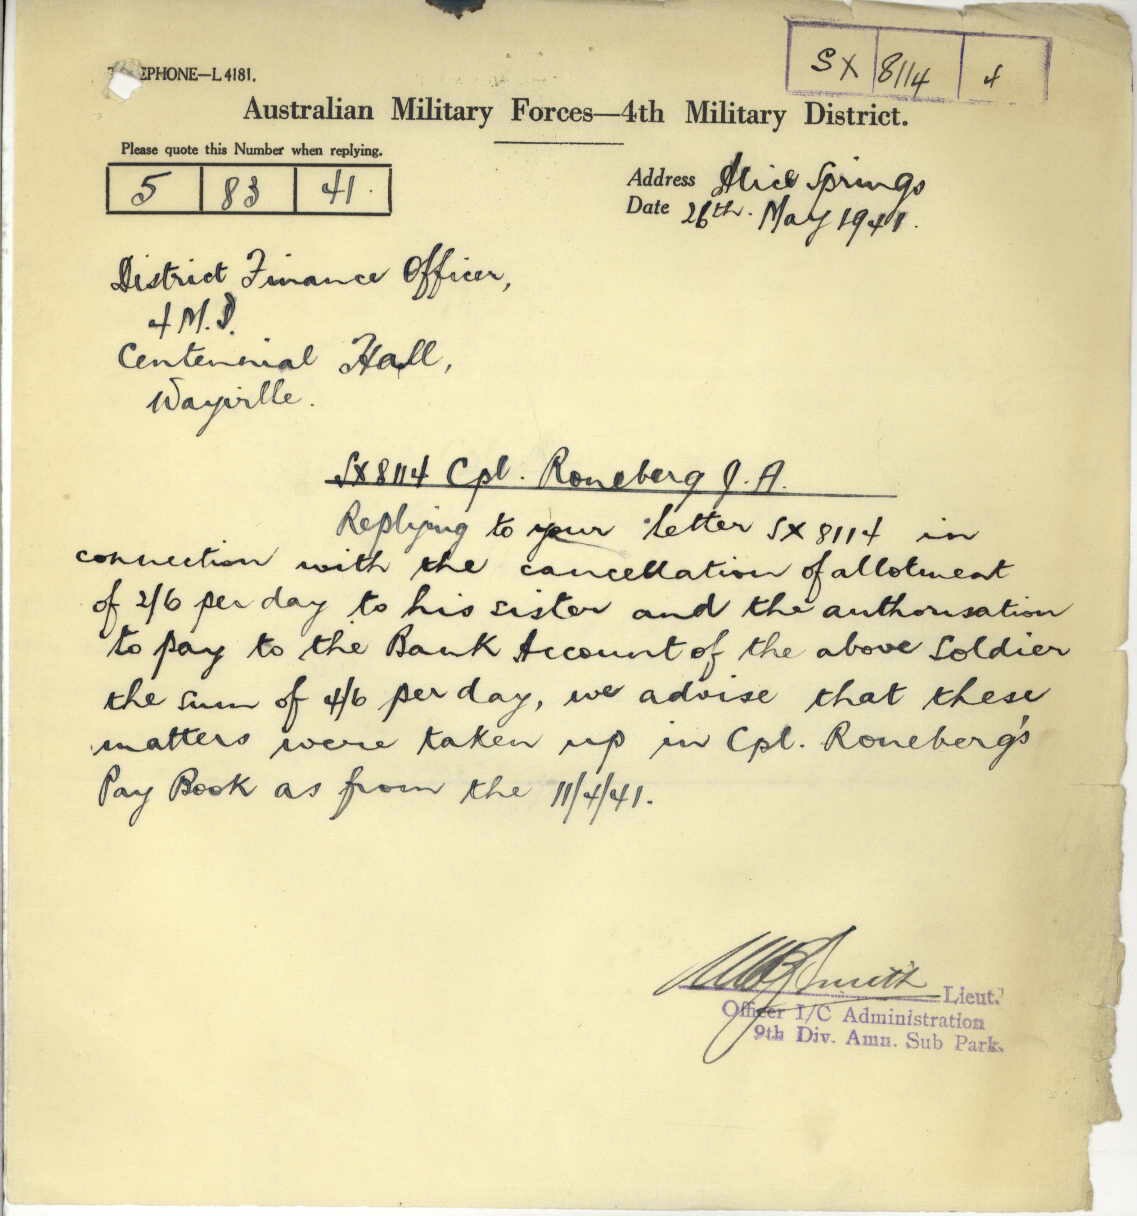 EPHONE—L 4181.
SX 8114 4
Australian Military Forces—4th Military District.
Please quote this Number when replying.
5 83 41.
Address Alice Springs
Date 26th. May 1941.
District Finance Officer,
4 M.D.
Centennial Hall,
Wayville.
SX8114 Cpl. Roneberg J.A.
Replying to your letter SX 8114 in
connection with the cancellation of allotment
of 2/6 per day to his sister and the authorisation
to pay to the Bank Account of the above Soldier
the sum of 4/6 per day, we advise that these
matters were taken up in Cpl. Roneberg's
Pay Book as from the 11/4/41.
Smith Lieut.
Officer I/C Administration
9th Div. Amn. Sub Park.